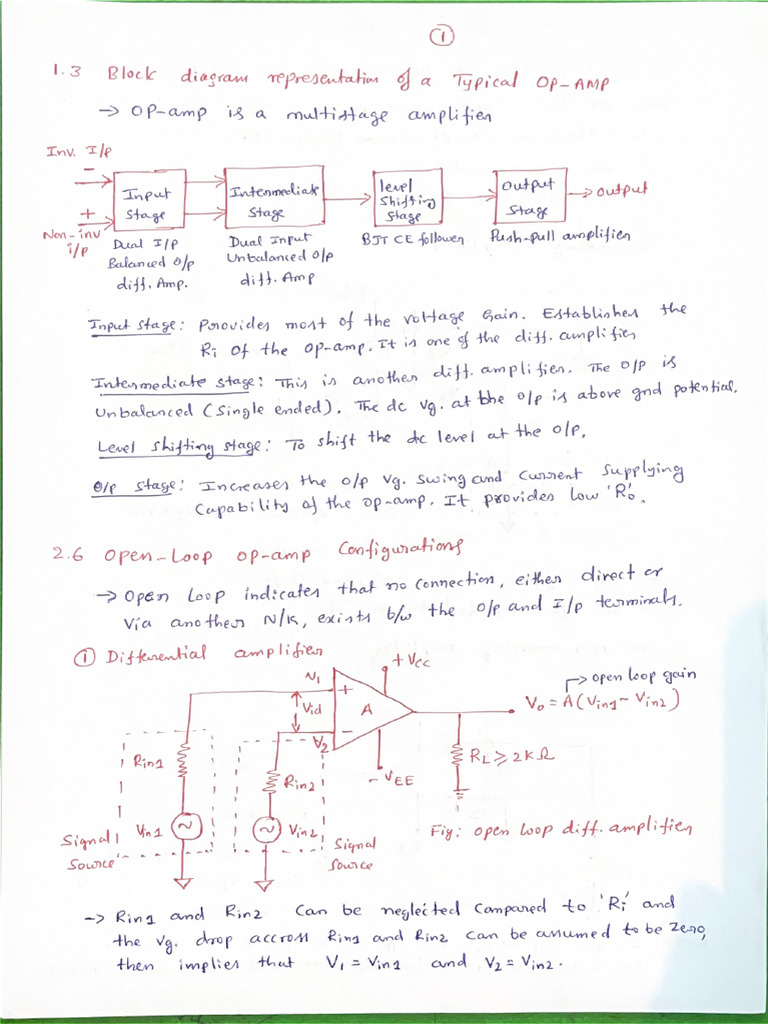 ①
1.3 Block diagram representation of a Typical OP-AMP
→ OP-amp is a multistage amplifier
Inv. I/P
−
Input Stage
Intermediate Stage
level Shifting Stage
Output Stage
→ output
+
Non-inv i/p
Dual I/P Balanced O/p diff. Amp.
Dual Input Unbalanced O/p diff. Amp
BJT CE follower
Push-pull amplifier
Input stage: Provides most of the voltage Gain. Establishes the
Ri of the op-amp. It is one of the diff. amplifier
Intermediate stage: This is another diff. amplifier. The O/P is
Unbalanced (Single ended). The dc vg. at the o/p is above gnd potential.
Level shifting stage: To shift the dc level at the o/p.
O/p stage: Increases the o/p vg. swing and current supplying
Capability of the op-amp. It provides low 'Ro'.
2.6 Open-Loop op-amp Configurations
→ Open Loop indicates that no connection, either direct or
Via another N/K, exists b/w the o/p and I/p terminals.
① Differential amplifier
V1
+ VCC
→ open loop gain
+
Vid
A
Vo = A(Vin1 - Vin2)
−
V2
Rin1
Rin2
- VEE
RL ≥ 2KΩ
Signal Source
Vin1
Vin2
Signal Source
Fig: open loop diff. amplifier
→ Rin1 and Rin2 Can be neglected Compared to 'Ri' and
the vg. drop accross Rin1 and Rin2 can be assumed to be zero,
then implies that V1 = Vin1 and V2 = Vin2.